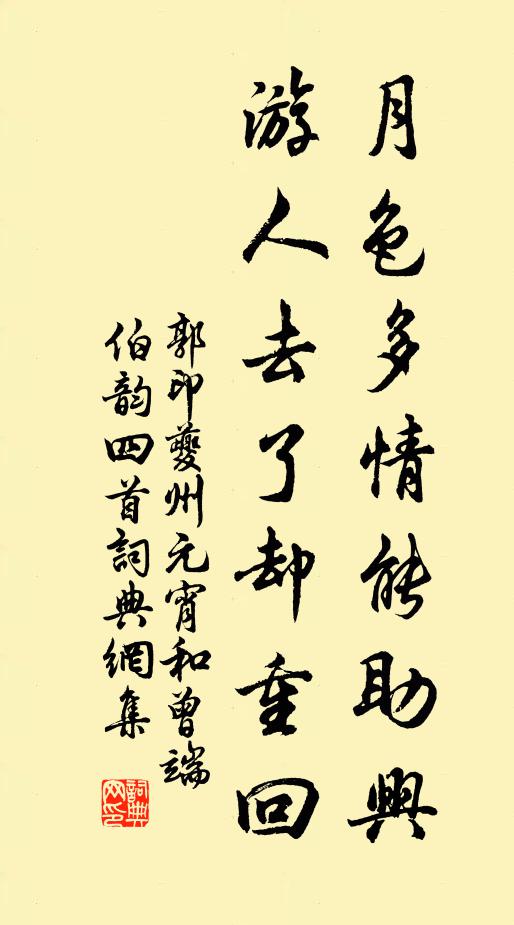 月色多情能助興
游人去了却重回
郭印夔州元宵和曾端
伯韵四首詞典網集
詞典
网印